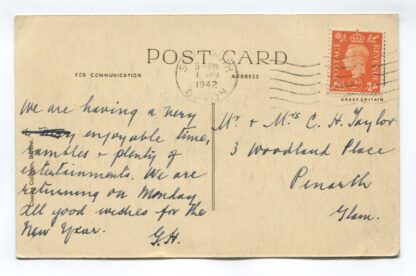 POST CARD
FOR COMMUNICATION
ADDRESS
5 - PM
1942
DEVON
POSTAGE
REVENUE
GREAT BRITAIN
We are having a very
enjoyable time,
rambles + plenty of
entertainments. We are
returning on Monday
All good wishes for the
New Year.
G.H.
Mr + Mrs C. H. Taylor
3 Woodland Place
Penarth
Glam.